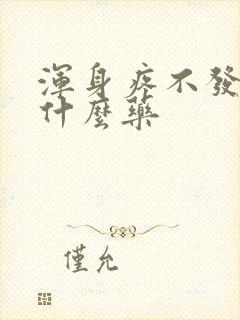 渾身疼不發
什麼藥
僅允